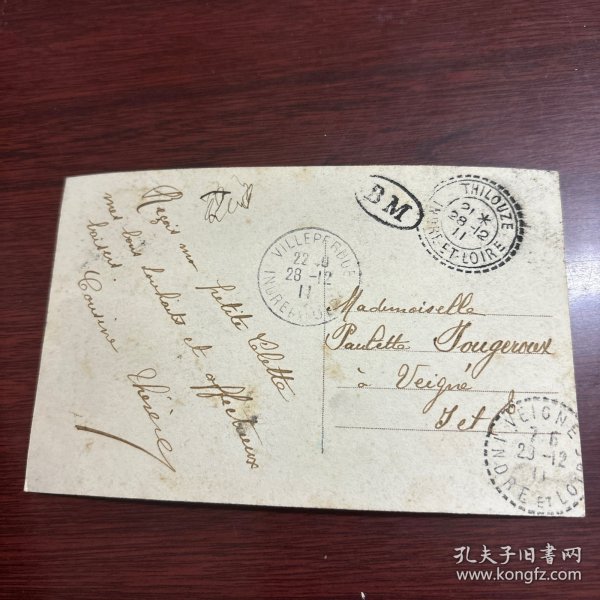 Reçois ma petite Pelette
mes bons souhaits et affectueux
baisers.
Cousine Thérèse
BM
THILOUZE
21 *
28-12
11
INDRE-ET-LOIRE
VILLEPERDUE
22
28-12
11
INDRE ET LOIRE
Mademoiselle
Paulette Fougeroux
à Veigné
I et L
VEIGNÉ
7 6
29-12
11
INDRE ET LOIRE
孔夫子旧书网
www.kongfz.com